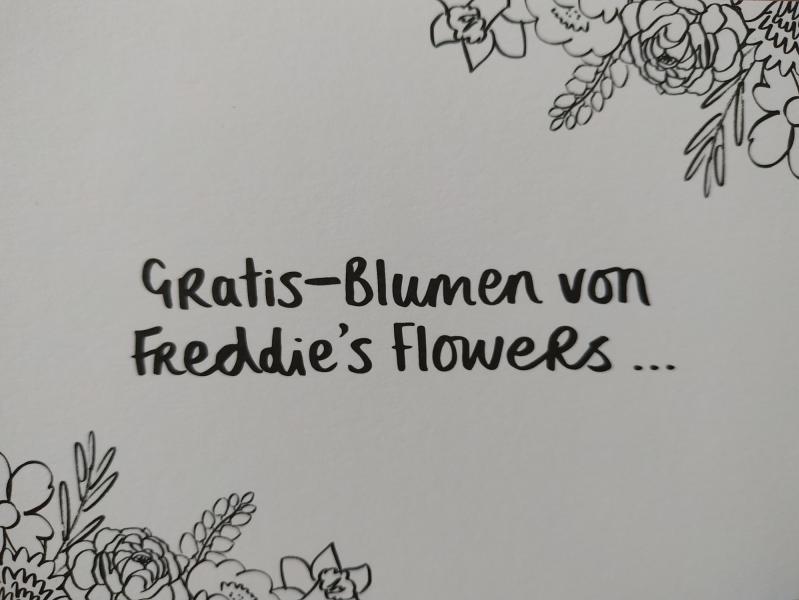 Gratis-Blumen von
Freddie's Flowers ...